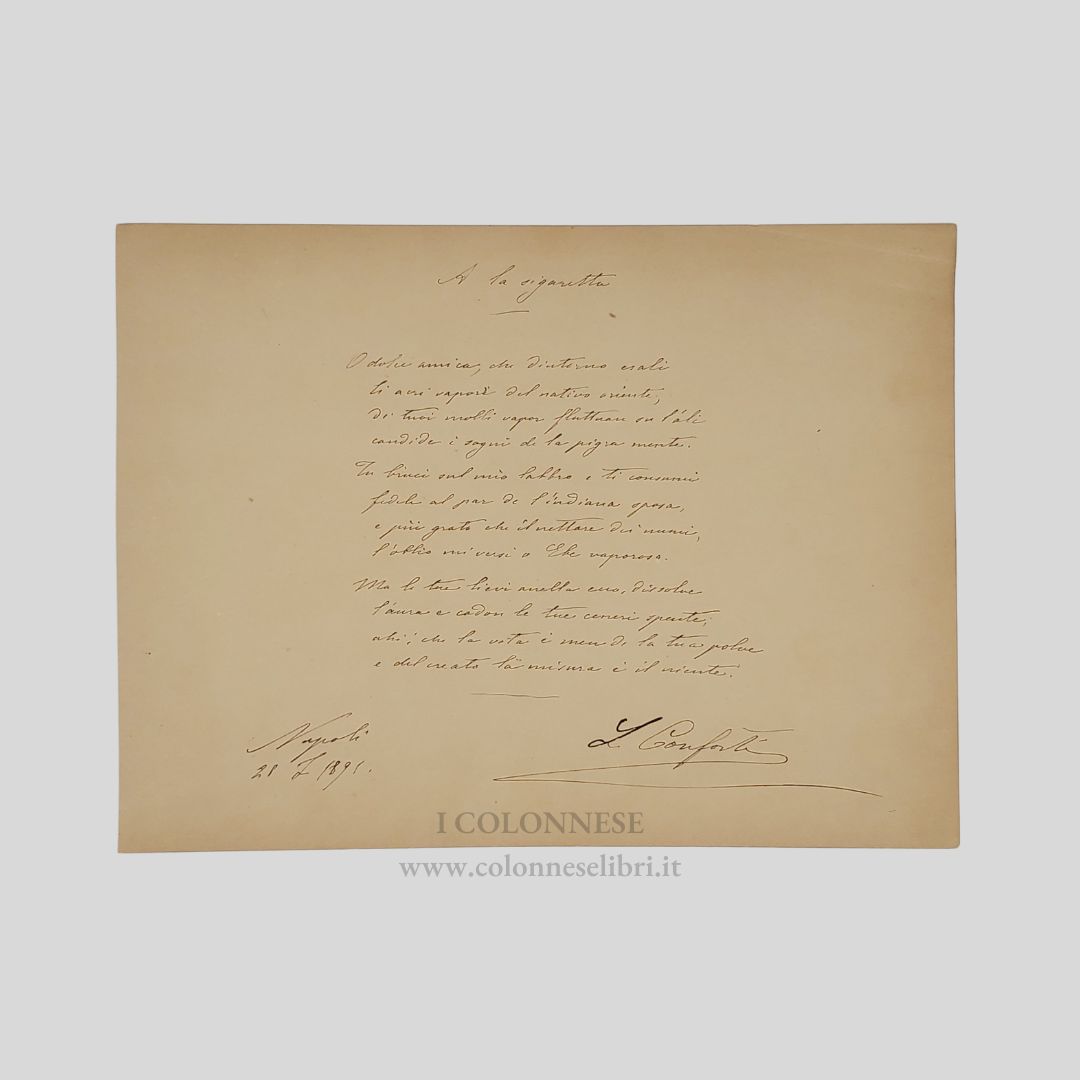 A la sigaretta
O dolce amica, che dintorno esali
li acri vapori del nativo oriente,
de' tuoi molli vapor fluttuan su l'ali
candide i sogni de la pigra mente.
Tu bruci sul mio labbro e ti consumi
fedele al par de l'indiana sposa,
e più grato che il nettare dei numi,
l'oblio mi versi o Ebe vaporosa.
Ma le tue lievi anella ecco, dissolve
l'aura e cadon le tue ceneri spente;
ahi; che la vita è men de la tua polve
e del creato la misura è il niente.
Napoli
28 1891.
L Conforti
I COLONNESE
www.colonneselibri.it